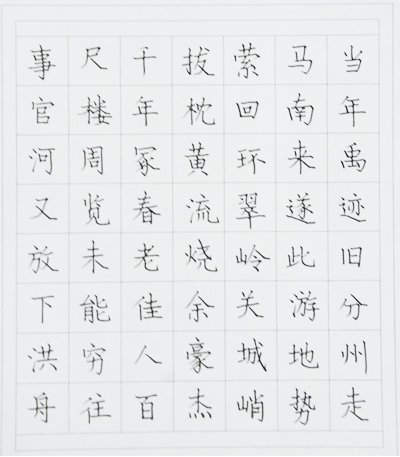 当年禹迹旧分州走
马南来遂此游地势
萦回环翠岭关城峭
拔枕黄流烧余豪杰
千年冢春老佳人百
尺楼周览未能穷往
事官河又放下洪舟